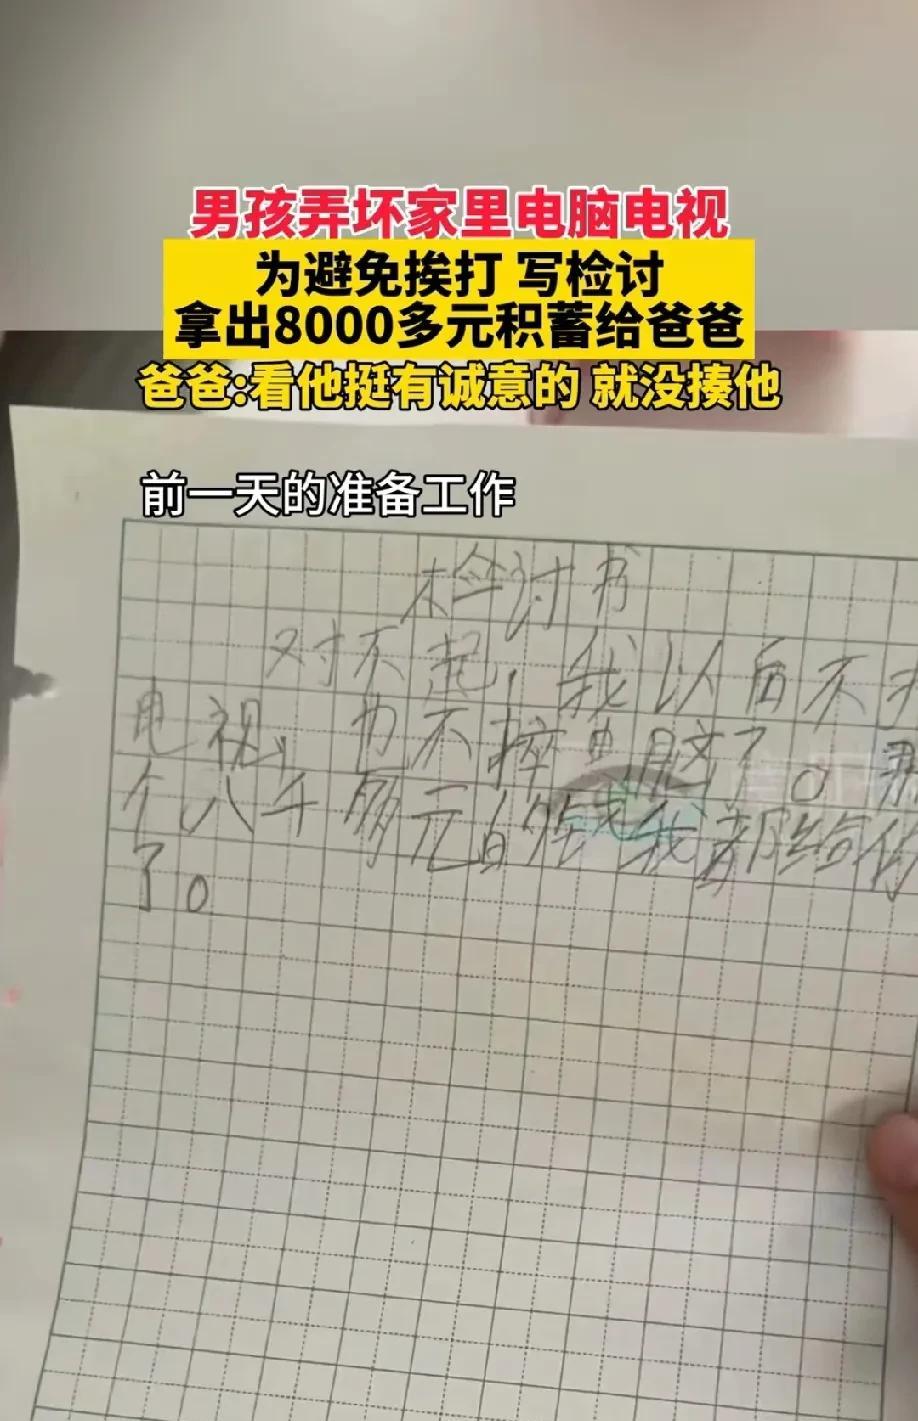 男孩弄坏家里电脑电视
为避免挨打 写检讨
拿出8000多元积蓄给爸爸
爸爸:看他挺有诚意的 就没揍他
前一天的准备工作
检讨书
对不起,我以后不
电视,也不摔电脑了。
个八千多元的
我都给你
了。